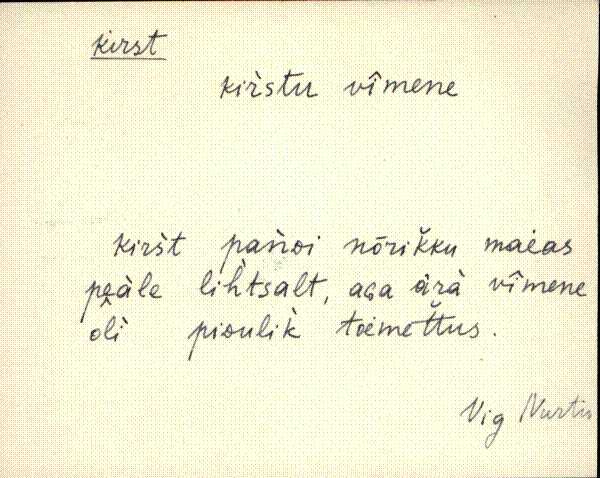 kirst
kìrstu vîmene
kiršt pàǹni nõrikku maėas
peàle lìhtsalt, aGa ärà vîmene
òlì piDulìk toimettus.
Vig Nurtu